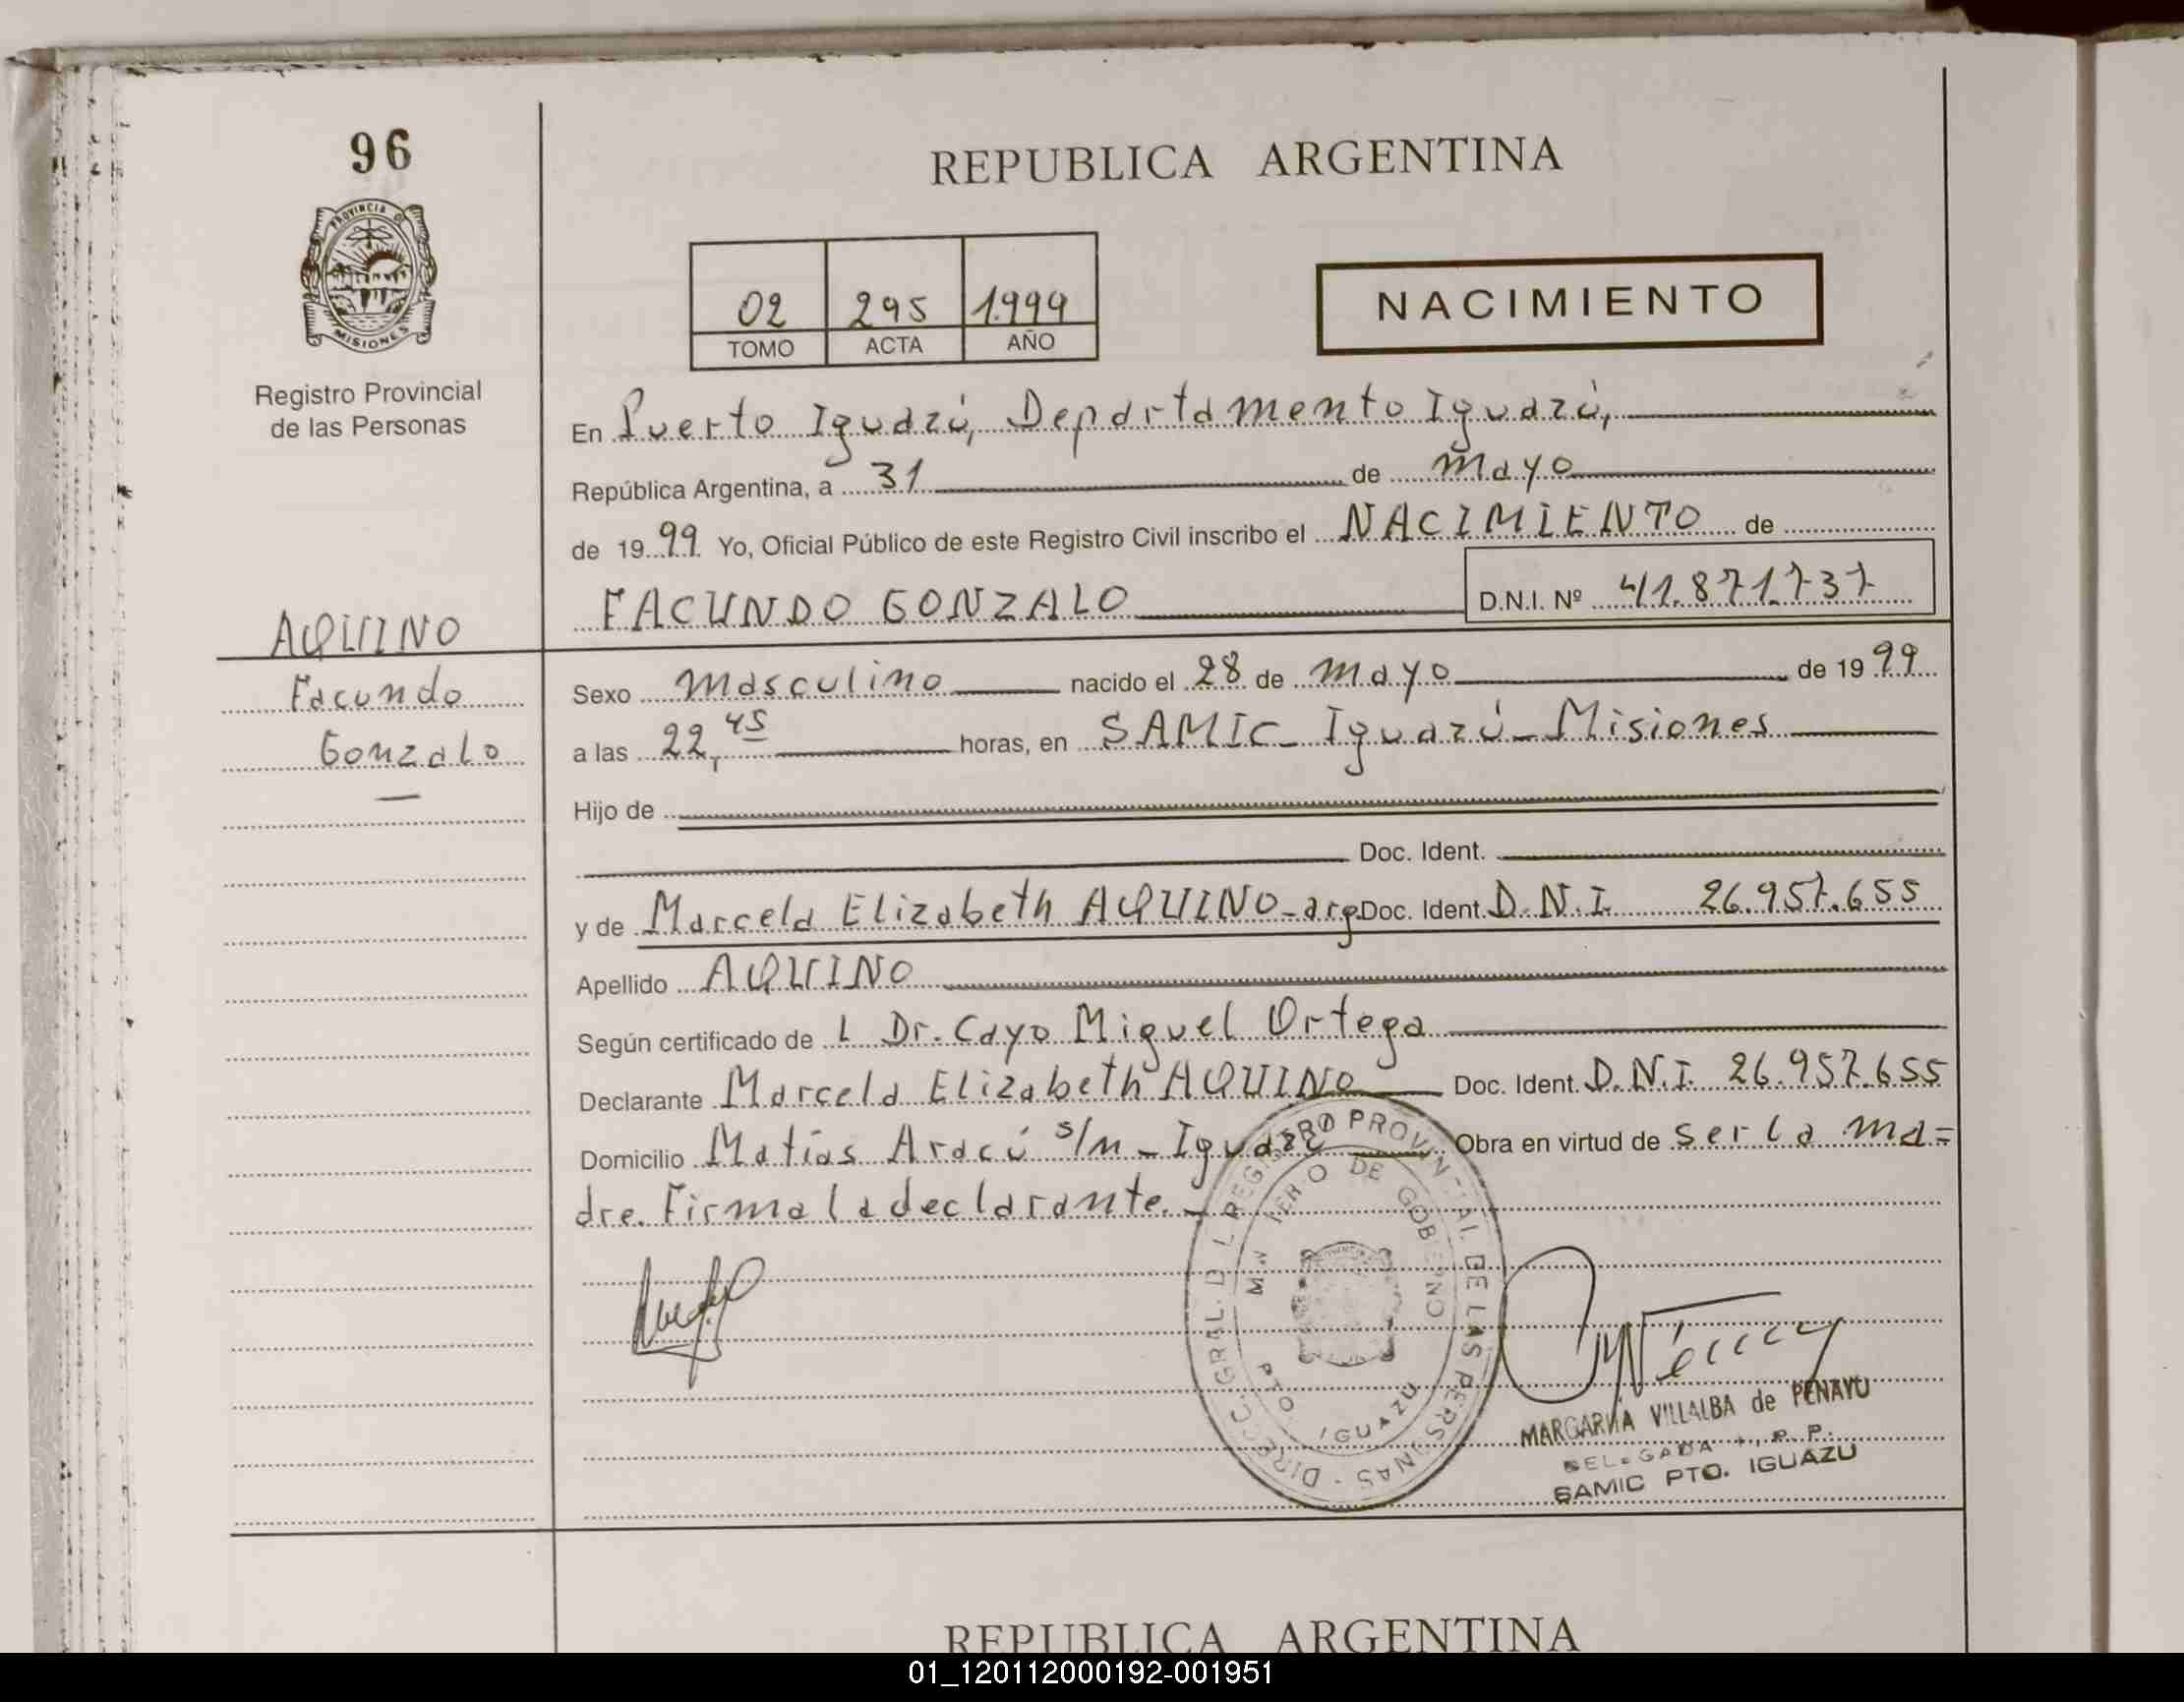 96
PROVINCIA DE
MISIONES
Registro Provincial
de las Personas
REPUBLICA ARGENTINA
02 295 1.999
TOMO ACTA AÑO
NACIMIENTO
En Puerto Iguazú, Departamento Iguazú,
República Argentina, a 31 de mayo
de 1999 Yo, Oficial Público de este Registro Civil inscribo el NACIMIENTO de
FACUNDO GONZALO D.N.I. Nº 41.871.737
AQUINO
Facundo
Gonzalo
Sexo masculino nacido el 28 de mayo de 1999
a las 22,45 horas, en SAMIC - Iguazú - Misiones
Hijo de
Doc. Ident.
y de Marcela Elizabeth AQUINO - arg Doc. Ident. D.N.I. 26.957.655
Apellido AQUINO
Según certificado de l Dr. Cayo Miguel Ortega
Declarante Marcela Elizabeth AQUINO Doc. Ident. D.N.I. 26.957.655
Domicilio Matías Aracú s/n - Iguazú Obra en virtud de ser la ma=
dre. Firma la declarante. -
DIRECC. GRAL. DEL REGISTRO PROVINCIAL DE LAS PERSONAS -
MINISTERIO DE GOBIERNO
PTO. IGUAZU
MARGARITA VILLALBA de PENAYO
DELEGADA R. P. P.
SAMIC PTO. IGUAZU
REPUBLICA ARGENTINA
01_120112000192-001951